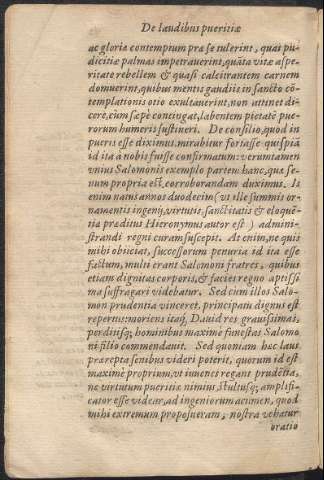 De laudibus pueritiæ
ac gloriæ contemptum præ se tulerint, quas pu-
dicitiæ palmas impetrauerint, quāta vitæ aspe-
ritate rebellem & quasi calcitrantem carnem
domuerint, quibus mentis gaudiis in sancto cō-
templationis otio exultauerint, non attinet di-
cere, cum sæpè contingat, labentem pietatē pue-
rorum humeris sustineri. De consilio, quod in
pueris esse diximus, mirabitur fortasse quispiā
id ita à nobis fuisse confirmatum: veruntamen
vnius Salomonis exemplo partem hanc, quæ se-
num propria est, corroborandam duximus. Is
enim natus annos duodecim (vt ille summis or-
namentis ingenij, virtutis, sanctitatis & eloquē-
tiæ præditus Hieronymus autor est) admini-
strandi regni curam suscepit. At enim, ne quis
mihi obiiciat, successorum penuria id ita esse
factum, multi erant Salomoni fratres, quibus
etiam dignitas corporis, & facies regno aptissi
ma suffragari videbatur. Sed cùm illos Salo-
mon prudentia vinceret, principatu dignus est
repertus: moriens itaq; Dauid res grauissimas,
perditisq; hominibus maximè funestas Salomo
ni filio commendauit. Sed quoniam hæc laus
prærepta senibus videri poterit, quorum id est
maximè proprium, vt iuuenes regant prudētia,
ne virtutum pueritiæ nimius, stultusq; amplifi-
cator esse videar, ad ingeniorum acumen, quod
mihi extremum proposueram, nostra vehatur
oratio